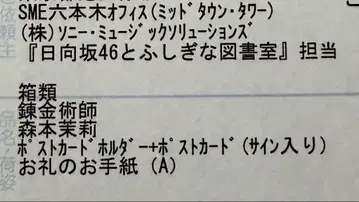 SME六本木ｵﾌｨｽ(ﾐｯﾄﾞﾀｳﾝ･ﾀﾜｰ)
(株)ｿﾆｰ･ﾐｭｰｼﾞｯｸｿﾘｭｰｼｮﾝｽﾞ
『日向坂46とふしぎな図書室』担当
箱類
錬金術師
森本茉莉
ﾎﾟｽﾄｶｰﾄﾞﾎﾙﾀﾞｰ+ﾎﾟｽﾄｶｰﾄﾞ(サイン入り)
お礼のお手紙(A)